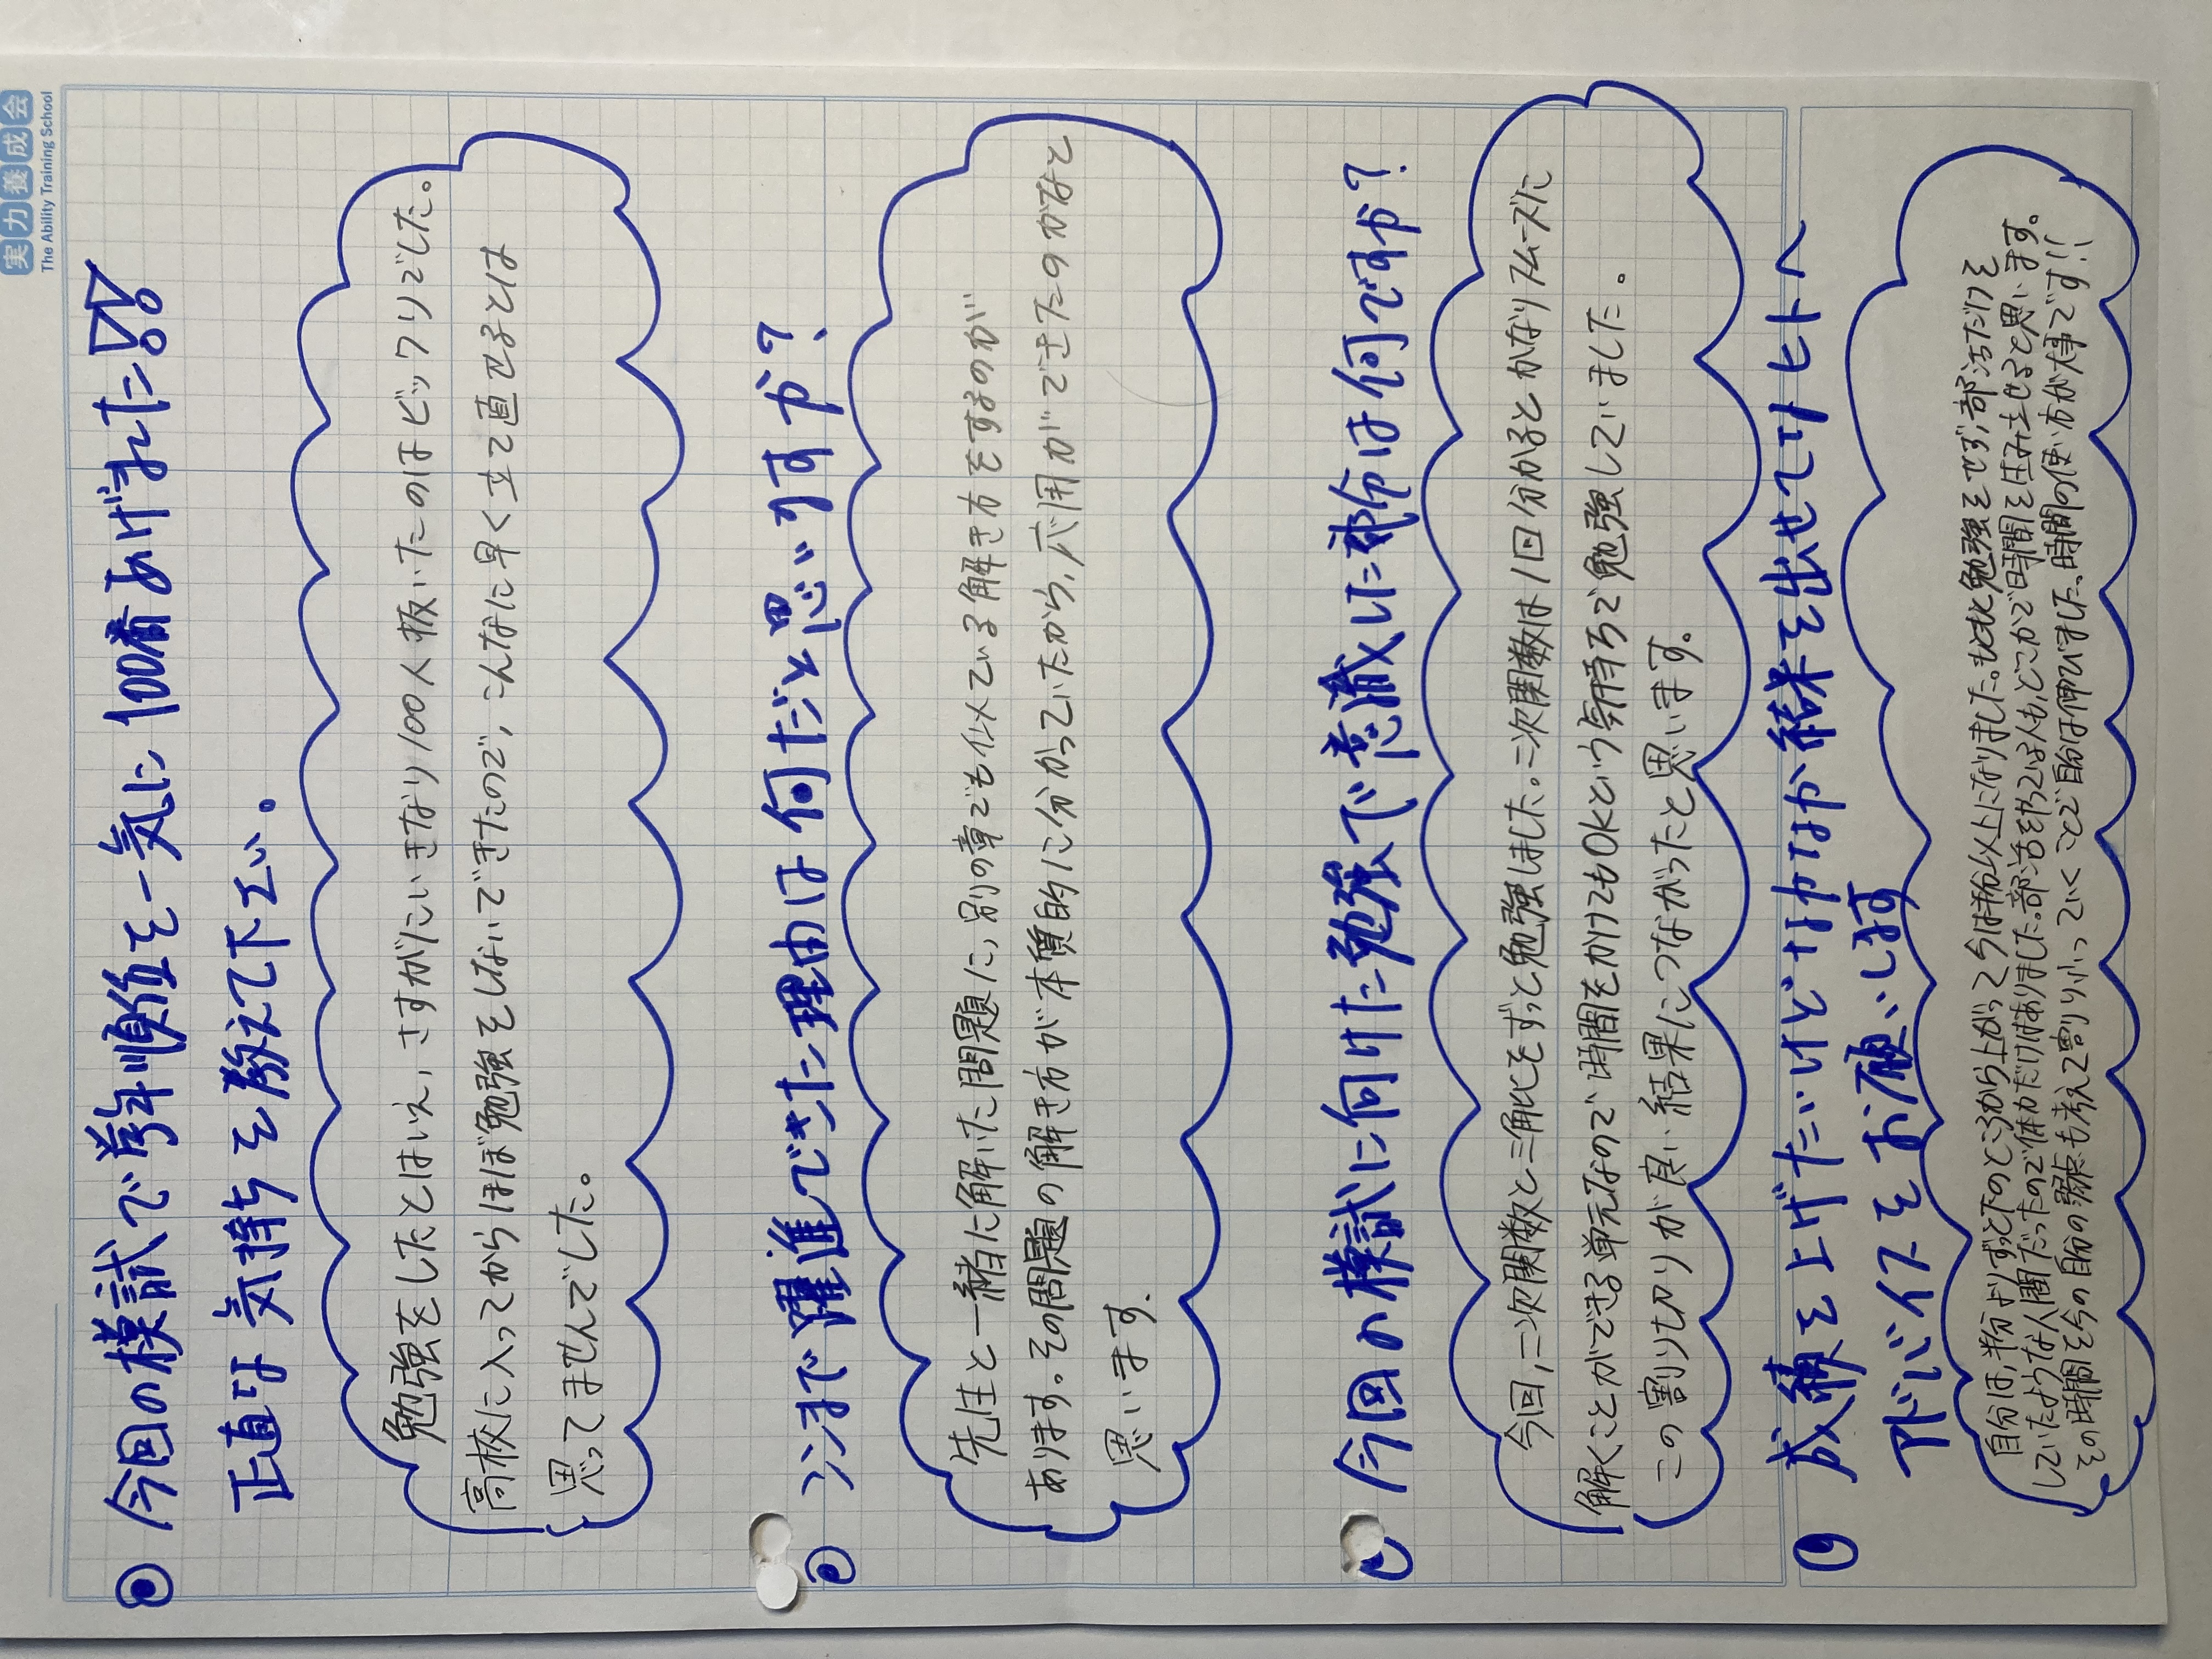 実力養成会
The Ability Training School
今回の模試で学年順位を一気に100番あげました!!
正直な気持ちを教えて下さい。
勉強をしたとはいえ、さすがにいきなり100人抜いたのはビックリでした。
高校に入ってからほぼ勉強をしないできたので、こんなに早く立て直せるとは
思ってませんでした。
ココまで躍進できた理由は何だと思いますか?
先生と一緒に解いた問題に、別の章でも似ている解き方をするのが
あります。その問題の解き方が本質的に分かっていたから、応用ができたのかなと
思います。
今回の模試に向けた勉強で意識した部分は何ですか?
今回、二次関数と三角比をずっと勉強しました。二次関数は1回分かるとかなりスムーズに
解くことができる単元なので時間をかけてもOKという気持ちで勉強していました。
この割り切りが良い結果につながったと思います。
成績を上げたいけどなかなか結果を出せてないヒトへ
アドバイスをお願いします
自分は、半分よりずっと下のところから上がって今は半分以上になりました。もともと勉強をせず、部活だけを
していたような人間だったので体力だけはありました。部活をやっている人も、どこかで時間を生み出せると思います。
その時間を今の自分の弱点も考えて割り振っていくことで自分は伸びました。時間の使い方が大事です!!